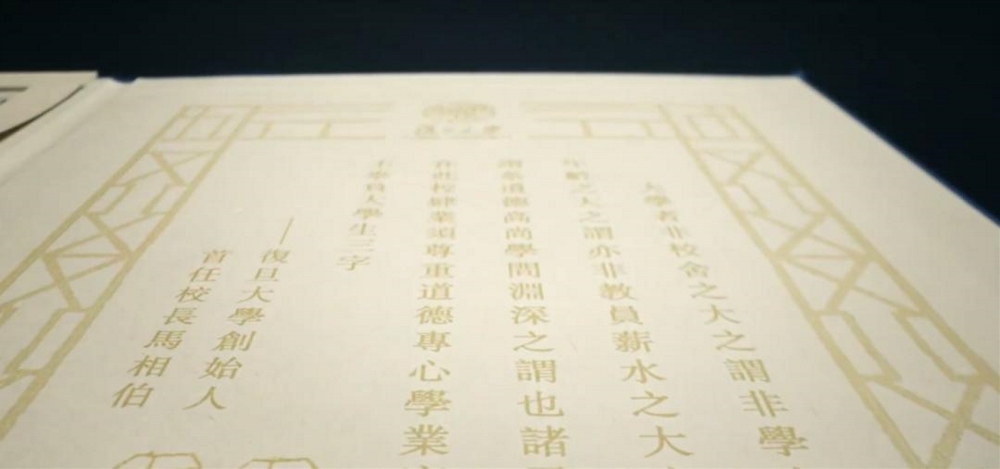 復旦大學
大學者非校舍之大之謂非學
年齡之大之謂亦非教員薪水之大
謂道德高尚學問淵深之謂也諸
在此校肄業須尊重道德專心學業
不辜負大學生三字
——復旦大學創始人
首任校長馬相伯